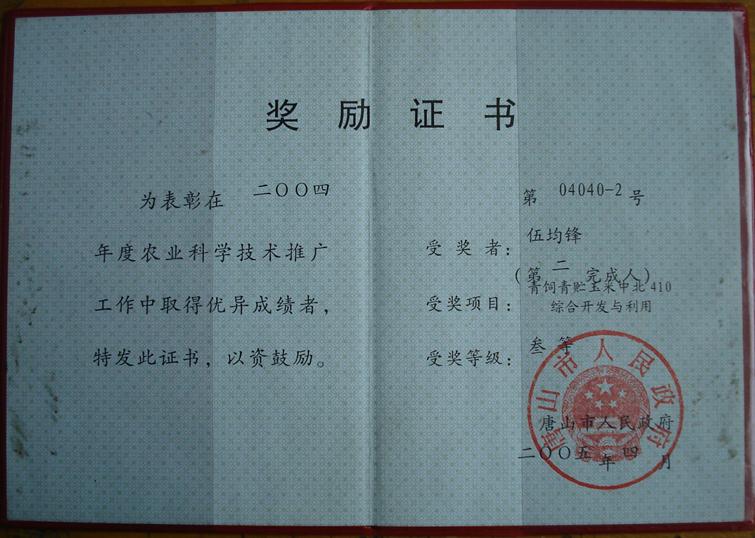 奖励证书
为表彰在 二〇〇四
年度农业科学技术推广
工作中取得优异成绩者，
特发此证书，以资鼓励。
第 04040-2 号
受奖者：伍均锋
（第 二 完成人）
受奖项目：青饲青贮玉米中北410
综合开发与利用
受奖等级：叁 等
唐山市人民政府
唐山市人民政府
二〇〇五 年 四 月